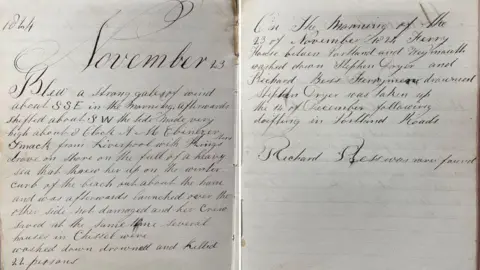 1824
November 23
Blew a strong gale of wind
about SSE in the morning afterwards
shifted about SW the tide made very
high about 8 Clock A M Ebenezer
Smack from Liverpool with Kings
drove on shore on the full of a heavy
sea that threw her up on the
of the beach out about the ham
and was afterwards launched over the
other side not damaged and her Crew
saved at the same time several
houses in Chissel were
washed down drownd and killed
22 persons
On The Morning of the
23 of November Two Ferry
House between Portland and Weymouth
washed down Stephen Dryer and
Richard Best Ferrymen drowned
Stephen Dryer was taken up
the 14 of December following
drifting in Portland Roads
Richard Best was never found